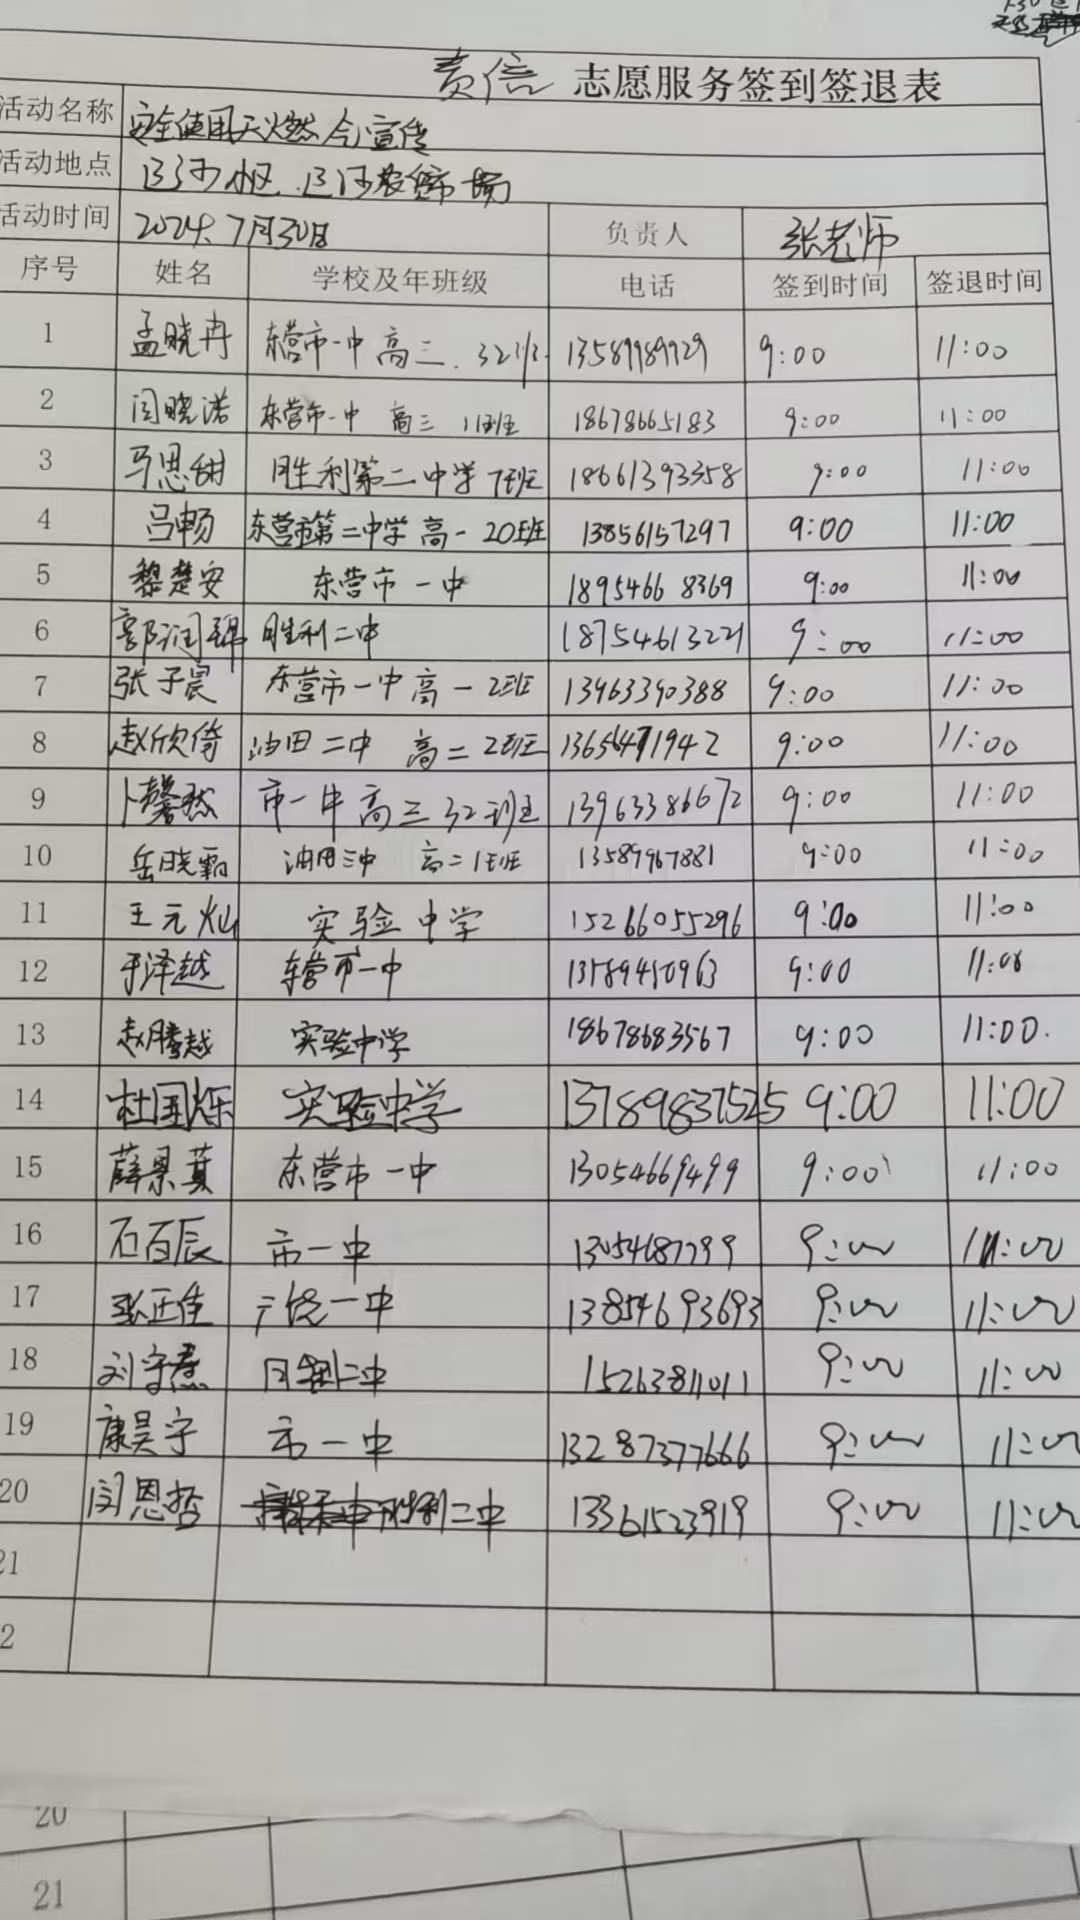 责信 志愿服务签到签退表
活动名称 安全使用天燃气宣传
活动地点 小区、农贸市场
活动时间 2024.7月30日 负责人 张老师
序号 姓名 学校及年班级 电话 签到时间 签退时间
1 孟晓冉 东营市一中 高三.32班 13589989929 9:00 11:00
2 闫晓诺 东营市一中 高三 11班 18678665183 9:00 11:00
3 马思甜 胜利第二中学 7班 18661393358 9:00 11:00
4 吕畅 东营市第二中学 高一 20班 13856157297 9:00 11:00
5 黎楚安 东营市一中 18954668369 9:00 11:00
6 郭润锦 胜利二中 18754613221 9:00 11:00
7 张子晨 东营市一中 高一 2班 13963390388 9:00 11:00
8 赵欣倚 油田二中 高二 2班 1365471942 9:00 11:00
9 卜馨然 市一中 高三 32班 13963386672 9:00 11:00
10 岳晓霸 油田三中 高二 1班 13589967881 9:00 11:00
11 王元灿 实验中学 15266055296 9:00 11:00
12 于泽越 东营市一中 9:00 11:00
13 赵腾越 实验中学 18678683567 9:00 11:00.
14 杜国烁 实验中学 13789837525 9:00 11:00
15 薛景 东营市一中 13054669499 9:00 11:00
16 石百辰 市一中 13054687799 9:00 11:00
17 张正佳 广饶一中 13854693693 9:00 11:00
18 刘守 胜利二中 15263811011 9:00 11:00
19 康昊宇 市一中 13287377666 9:00 11:00
20 闫恩哲 胜利二中 13361523919 9:00 11:00
21
2
20
21